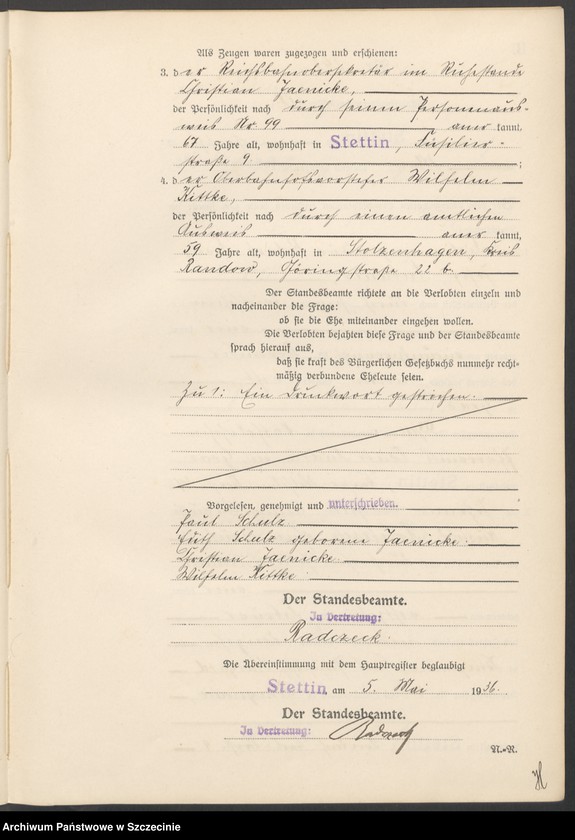 Als Zeugen waren zugezogen und erschienen:
3. der Reichsbahnobersekretär im Ruhestande
Christian Jaenicke,
der Persönlichkeit nach durch seinen Personenaus-
weis Nr. 99 aner kannt,
67 Jahre alt, wohnhaft in Stettin, Füsilier-
straße 9 ;
4. der Oberbahnhofsvorsteher Wilhelm
Kittke,
der Persönlichkeit nach durch einen amtlichen
Ausweis aner kannt,
59 Jahre alt, wohnhaft in Stolzenhagen, Kreis
Randow, Göringstraße 22 b.
Der Standesbeamte richtete an die Verlobten einzeln und
nacheinander die Frage:
ob sie die Ehe miteinander eingehen wollen.
Die Verlobten bejahten diese Frage und der Standesbeamte
sprach hierauf aus,
daß sie kraft des Bürgerlichen Gesetzbuchs nunmehr recht-
mäßig verbundene Eheleute seien.
Zu 1: Ein Druckwort gestrichen.
Vorgelesen, genehmigt und unterschrieben.
Paul Schulz
Ruth Schulz geborene Jaenicke.
Christian Jaenicke
Wilhelm Kittke
Der Standesbeamte.
In Vertretung:
Radczeck.
Die Übereinstimmung mit dem Hauptregister beglaubigt
Stettin, am 5. Mai 1936.
Der Standesbeamte.
In Vertretung: Radczeck
N.=R.
Archiwum Państwowe w Szczecinie